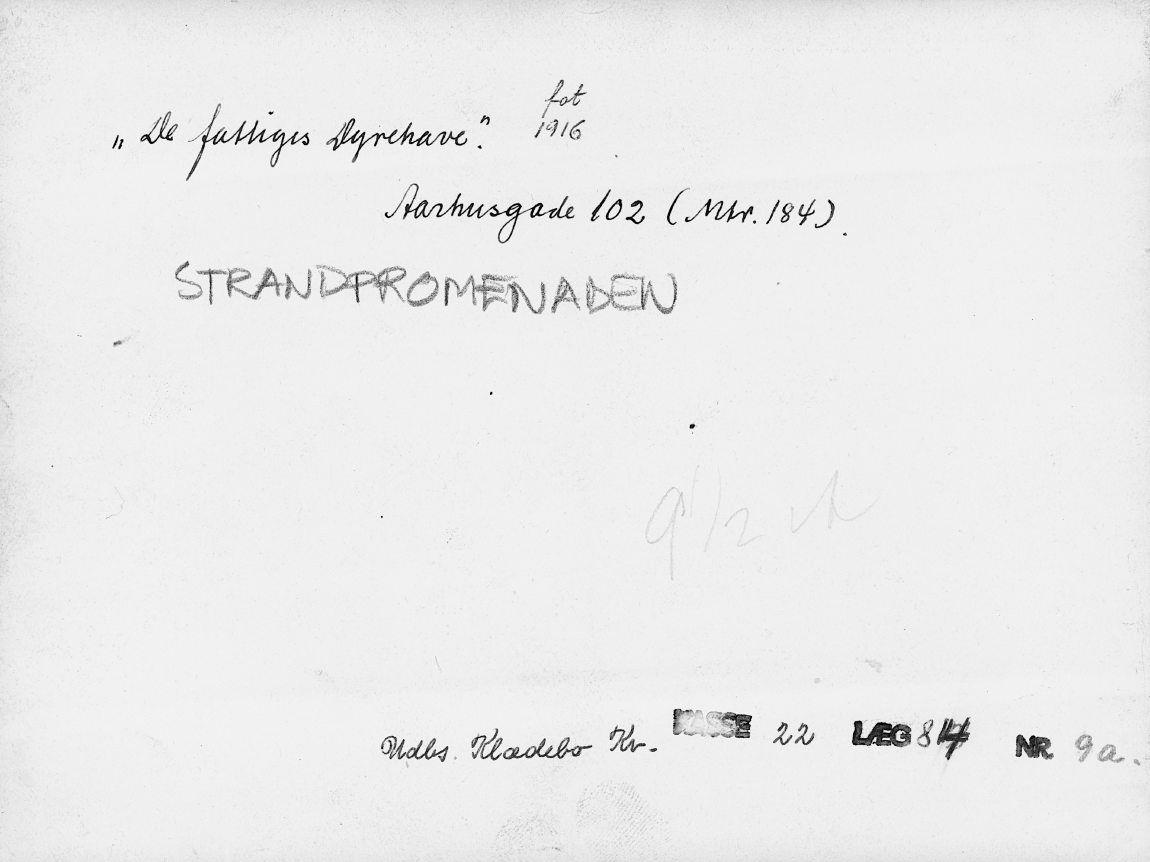 „De fattiges Dyrehave".
fot
1916
Aarhusgade 102 (Mtr. 184).
STRANDPROMENADEN
9 1/2
Udbs. Klædebo Kv. KASSE 22 LÆG 84 NR. 9a.